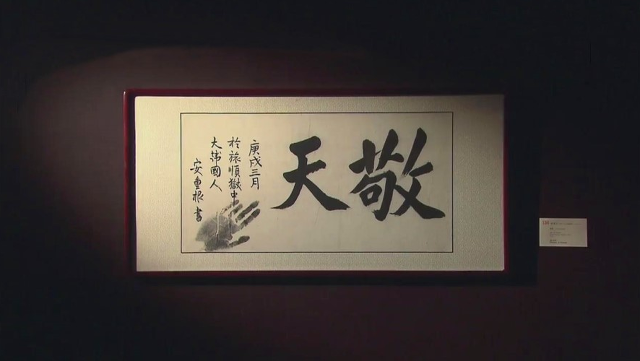 敬天
庚戌三月
於旅順獄中
大韓國人
安重根書